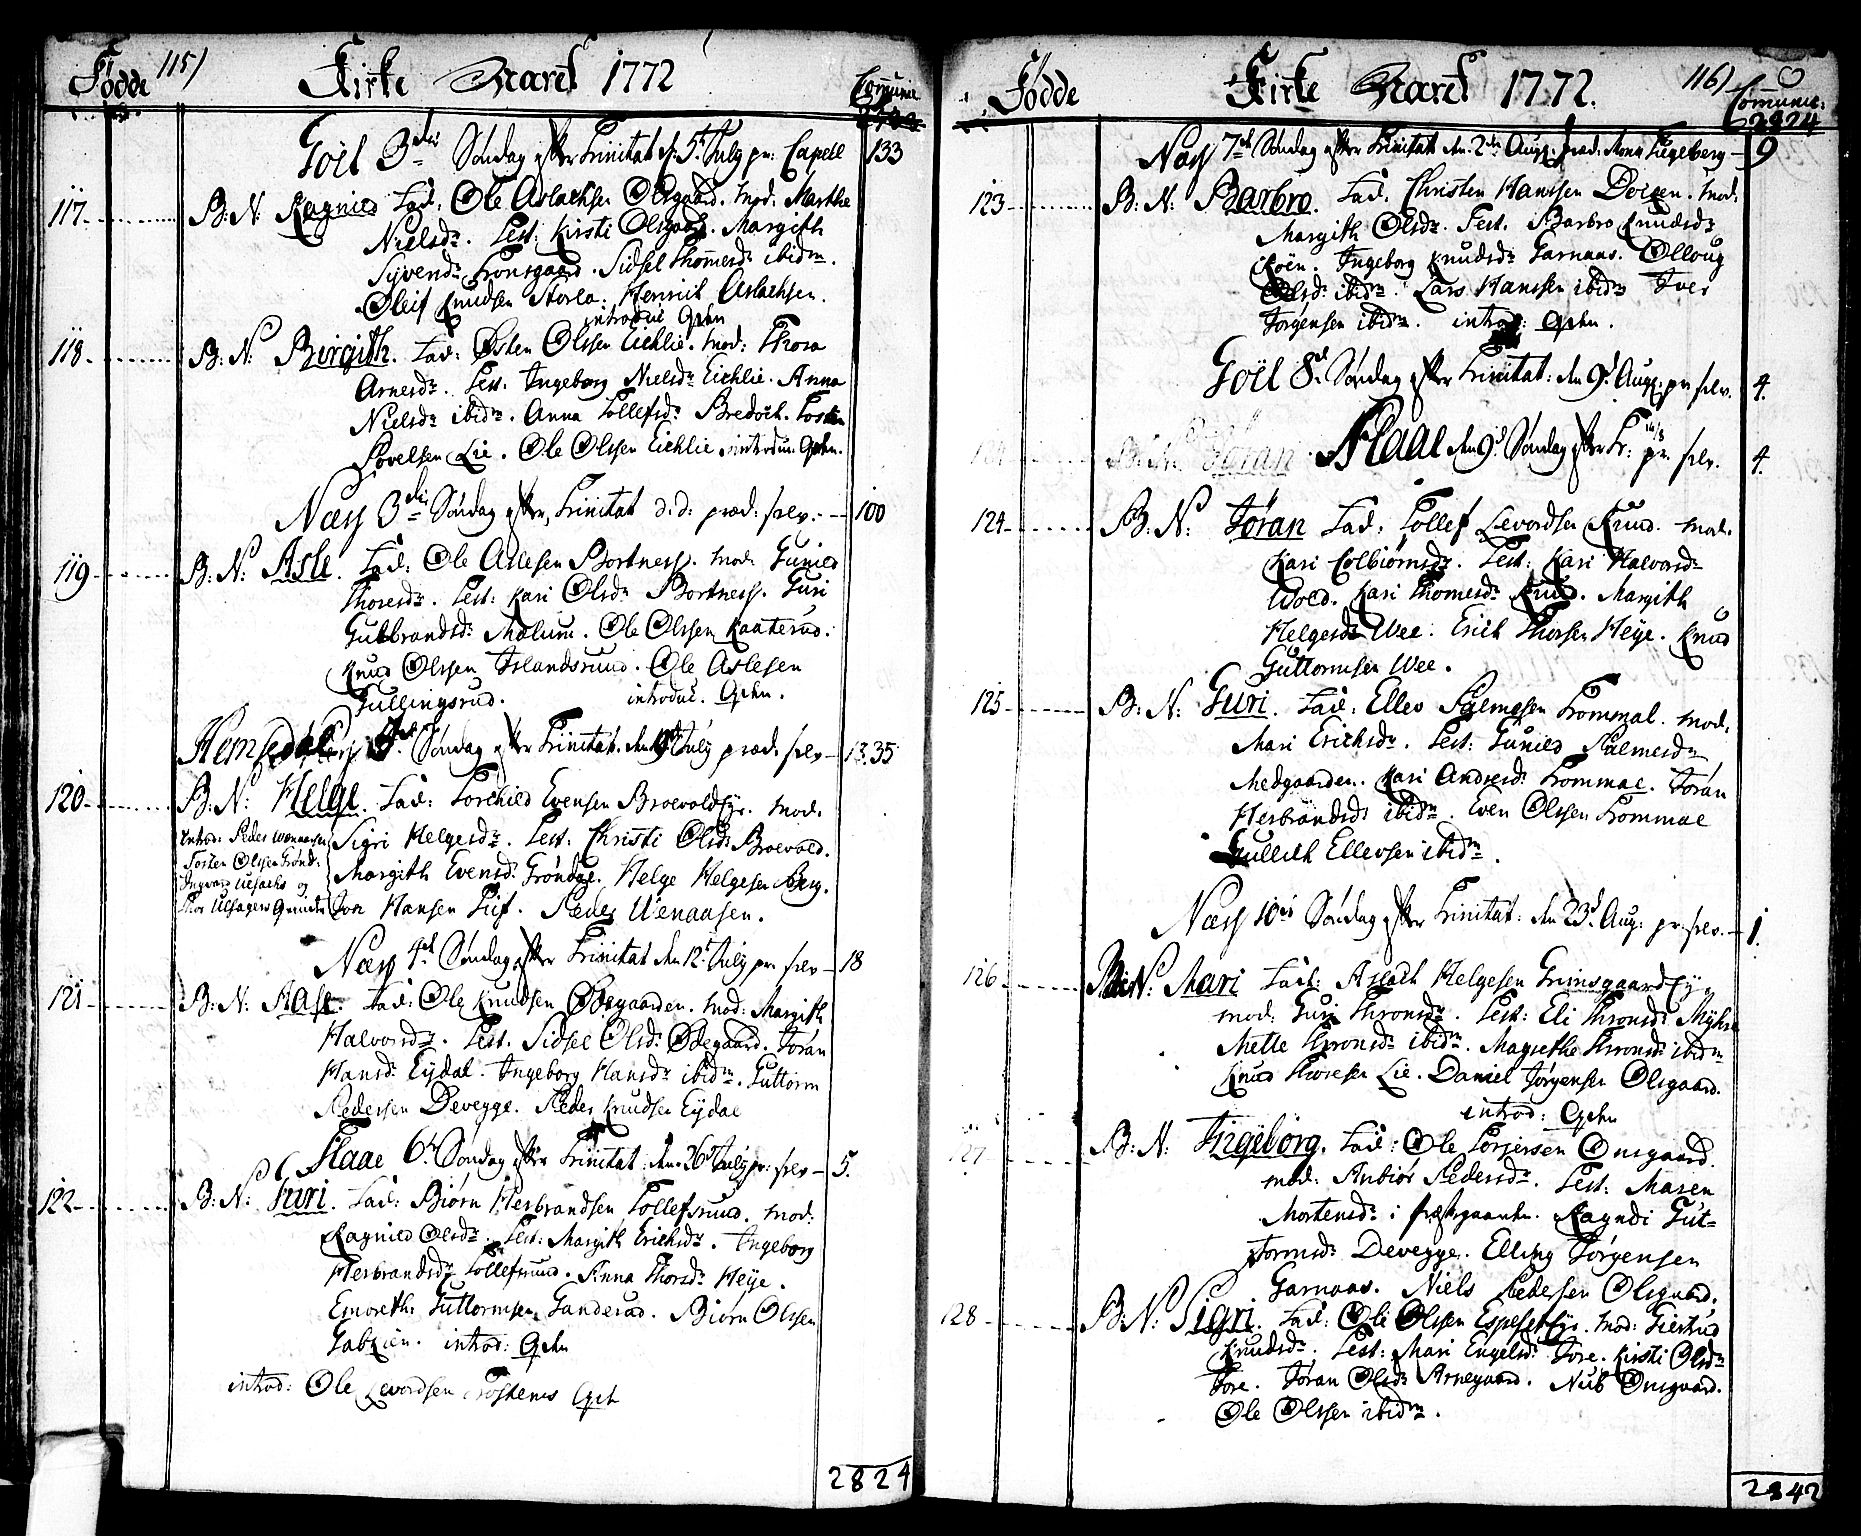 Fødde 115) Kirke Aaret 1772 Commun:
Goel 3die Søndag efter Trinitat d. 5t July pr: Capell 133
117 B: N: Ragnild Fad: Ole Aslachsen Olsgaard. mod. Marthe
Nielsdr. Test: Kirsti Olsgaard. Margith
Syversdr Tronsgaard. Sidsel Thomesdr ibidm.
Oleif Knudsen Storla. Henrich Aslachsen.
introduc Qvhn
118 B: N: Birgith. Fad: Østen Olssen Eichlie. mod: Thora
Arnesdr. Test. Ingeborg Nielsdr Eichlie. Anna
Nielsdr ibidm. Anna Tollefsdr Bredoch. Tosten
Povelsen Lie. Ole Olssen Eichlie introdu: Qvhn.
Næss 3die Søndag efter Trinitat d:d: præd: selv. 100
119 B: N: Asle. Fad: Ole Aslesen Bortness. mod. Gunild
Thoresdr. Test: Kari Olsdr Bortness. Guri
Gulbrandsdr Mælum. Ole Olssen Kaaterud.
Knud Olssen Islandsruud. Ole Aslesen
Gullingsrud. introduc. Qvhn.
Hemsedal Søndag efter Trinitat. den July præd. selv 13.35
120 B: N: Helge. Fad: Torchild Evensen Broevold. mod.
Introd: Peder Wænaasen Sigri Helgesdr. Test. Christi Olsdr Broevold.
Tosten Olssen Grønd: Margith Evensdr Grøndal. Helge Helgesen Berg.
Ingvar Ulsachs og
Thor Ulsagers Qvinder Joa Hansen Tuf. Peder Wenaasen.
Næss 4de Søndag efter Trinitat den 12t July pr. selv 18
121 B: N: Aase. Fad: Ole Knudsen Ødegaarden. mod: Margith
Halvorsdr. Test. Sidsel Olsdr Ødegaard. Jøran
Hansdr Eydal. Ingeborg Hansdr ibidm. Guttorm
Pedersen Devegge. Peder Knudsen Eydal
Flaae 6t Søndag efter Trinitat: den 26d July pr: selv 5.
122 B: N: Juri. Fad: Biørn Herbrandsen Tollefsruud. mod:
Ragnild Olsdr. Test. Margith Erichsdr. Ingeborg
Herbrandsdr Tollefsruud. Anna Thorsdr Heye.
Emoreth: Guttormsen Ganderud. Biørn Olssen
introd: Qvhn
introd: Ole Levordsen Trostems Qvh
2824
Fødde Kirke Aaret 1772. 116) Commun:
2824
Næss 7de Søndag efter Trinitat den 2den Aug: præd. Mons: Fugelberg 9
123 B: N: Barbro. Fad. Christen Hanssen Dølgen. mod.
Margith Olsdr. Test. Barbro Knudsdr
Røen. Ingeborg Knudsdr Garnaas. Olloug
Olsdr ibidm. Lars Hanssen ibidm Iver
Jørgensen ibidm. introd: Qvhn.
Goel 8de Søndag efter Trinitat: den 9d Aug: pr selv. 4.
B: N: Jøran. Flaae den 9d Søndag efter Tr: 16/8 pr. selv. 4.
124 B: N: Jøran Fad: Tollef Levordsen Kruud. mod.
Kari Colbiørnsdr. Test: Kari Halvorsdr
Wold. Kari Thomesdr Kruud. Margith
Helgesdr Wee. Erich Thorsen Heye. Knud
Guttormsen Wee.
125 B: N: Guri. Fad: Ellev Palmesen Trommal. mod.
Mari Erichsdr. Test: Gunild Palmesdr
Medgaarden. Kari Andresdr Trommal. Jøran
Herbrandsdr ibidm. Even Olssen Trommal
Gullich Ellevsen ibidm.
Næss 10de Søndag efter Trinitat: den 23d Aug: pr. selv. 1.
126 B: N: Mari Fad: Aslach Helgesen Grimsgaard ey.
mod: Guri Thronsdr. Test: Eli Thronsdr Myhre
Mette Thronsdr ibidm. Magrethe Thronsdr ibidm
Knud Thoresen Lie. Daniel Jørgensen Olsgaard.
introd: Qvhn
127 B: N. Ingeborg. Fad: Ole Torjersen Onsgaard.
mod: Anbiør Pedersdr. Test: Maren
Mortensdr i Præstgaarden. Ragndi Gut-
tormsdr Devegge. Elling Jørgensen
Garnaas. Niels Pedersen Olsgaard.
128 B: N: Sigri. Fad: Ole Olssen Espeset. mod: Giertrud
Knudsdr. Test: Mari Engelsdr Tore. Kirsti Olsdr
Tore. Jøran Olsdr Arnegaard. Nub Onsgaard.
Ole Olssen ibidm.
2842